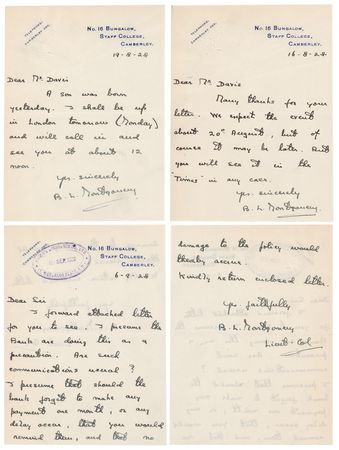 TELEPHONE:
CAMBERLEY
No. 16 BUNGALOW,
STAFF COLLEGE,
CAMBERLEY.
19-8-28
Dear Mr Davis
A son was born
yesterday. I shall be up
in London tomorrow (Monday)
and will call in and
see you at about 12
noon.
Yrs. sincerely
B. L. Montgomery
TELEPHONE:
CAMBERLEY
No. 16 BUNGALOW,
STAFF COLLEGE,
CAMBERLEY.
16-8-28
Dear Mr Davis
Many thanks for your
letter. We expect the event
about 20th August, but of
course it may be later. But
you will see it in the
"Times" in any case.
Yrs. sincerely
B. L. Montgomery
TELEPHONE:
CAMBERLEY
No. 16 BUNGALOW,
STAFF COLLEGE,
CAMBERLEY.
SEP. 1928
6-9-28
Dear Sir
I forward attached letter
for you to see. I presume the
Bank are doing this as a
precaution. Are such
communications usual?
I presume that should the
bank forget to make any
payment one month, or any
delay occur, that you would
remind them, and that no
damage to the policy would
thereby accrue.
Kindly return enclosed letter.
Yrs. faithfully
B. L. Montgomery
Lieut-Col.